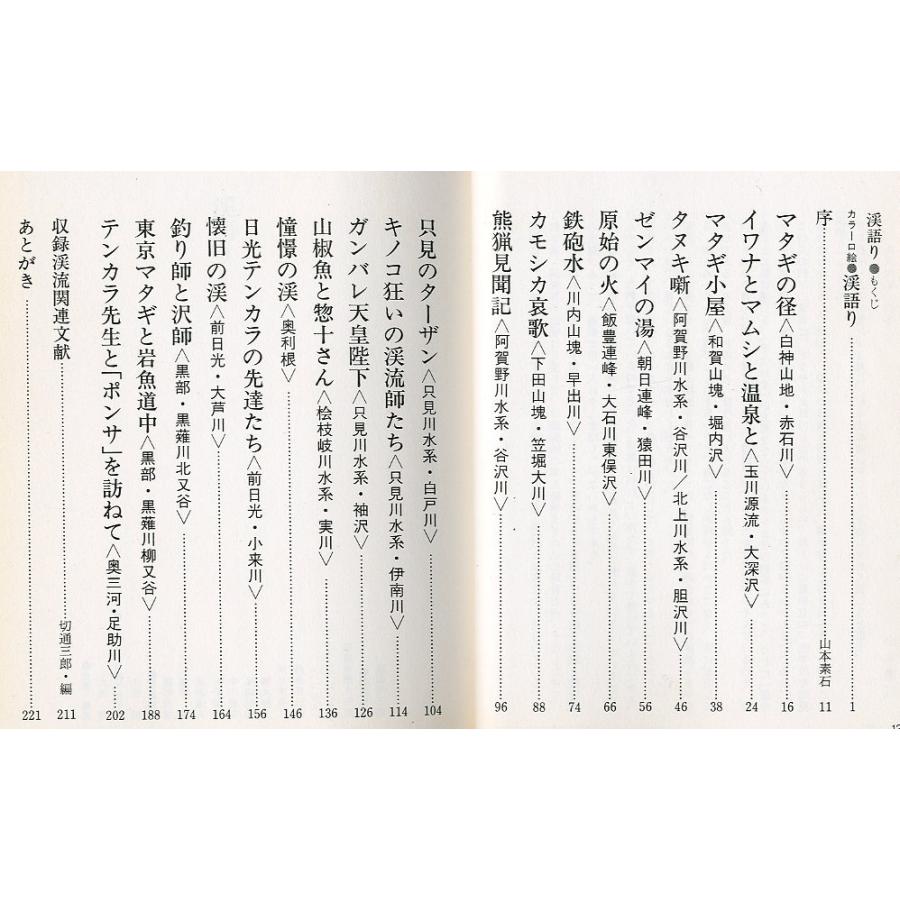 渓語り●もくじ
カラー口絵●渓語り……1
序……山本素石 11
マタギの径〈白神山地・赤石川〉……16
イワナとマムシと温泉と〈玉川源流・大深沢〉……24
マタギ小屋〈和賀山塊・堀内沢〉……38
タヌキ噺〈阿賀野川水系・谷沢川／北上川水系・胆沢川〉……46
ゼンマイの湯〈朝日連峰・猿田川〉……56
原始の火〈飯豊連峰・大石川東俣沢〉……66
鉄砲水〈川内山塊・早出川〉……74
カモシカ哀歌〈下田山塊・笠堀大川〉……88
熊猟見聞記〈阿賀野川水系・谷沢川〉……96
只見のターザン〈只見川水系・白戸川〉……104
キノコ狂いの渓流師たち〈只見川水系・伊南川〉……114
ガンバレ天皇陛下〈只見川水系・袖沢〉……126
山椒魚と惣十さん〈桧枝岐川水系・実川〉……136
憧憬の渓〈奥利根〉……146
日光テンカラの先達たち〈前日光・小来川〉……156
懐旧の渓〈前日光・大芦川〉……164
釣り師と沢師〈黒部・黒薙川北又谷〉……174
東京マタギと岩魚道中〈黒部・黒薙川柳又谷〉……188
テンカラ先生と「ポンサ」を訪ねて〈奥三河・足助川〉……202
収録渓流関連文献……切通三郎・編 211
あとがき……221